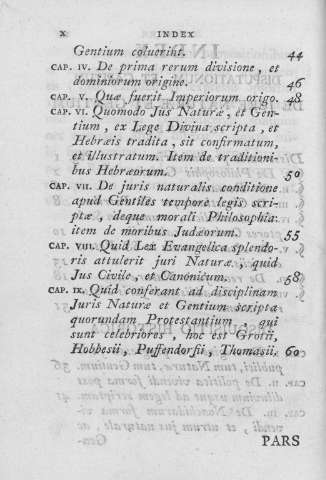 X INDEX
Gentium coluerint. 44
CAP. IV. De prima rerum divisione, et
dominiorum origine. 46
CAP. V. Quæ fuerit Imperiorum origo. 48
CAP. VI. Quomodo Jus Naturæ, et Gen-
tium, ex Lege Divina scripta, et
Hebræis tradita, sit confirmatum,
et illustratum. Item de traditioni-
bus Hebræorum. 50
CAP. VII. De juris naturalis conditione
apud Gentiles tempore legis scri-
ptæ, deque morali Philosophia:
item de moribus Judæorum. 55
CAP. VIII. Quid Lex Evangelica splendo-
ris attulerit juri Naturæ, quid
Jus Civile, et Canonicum. 58
CAP. IX. Quid conferant ad disciplinam
Juris Naturæ et Gentium scripta
quorundam Protestantium, qui
sunt celebriores, hoc est Grotii,
Hobbesii, Puffendorfii, Thomasii. 60
PARS